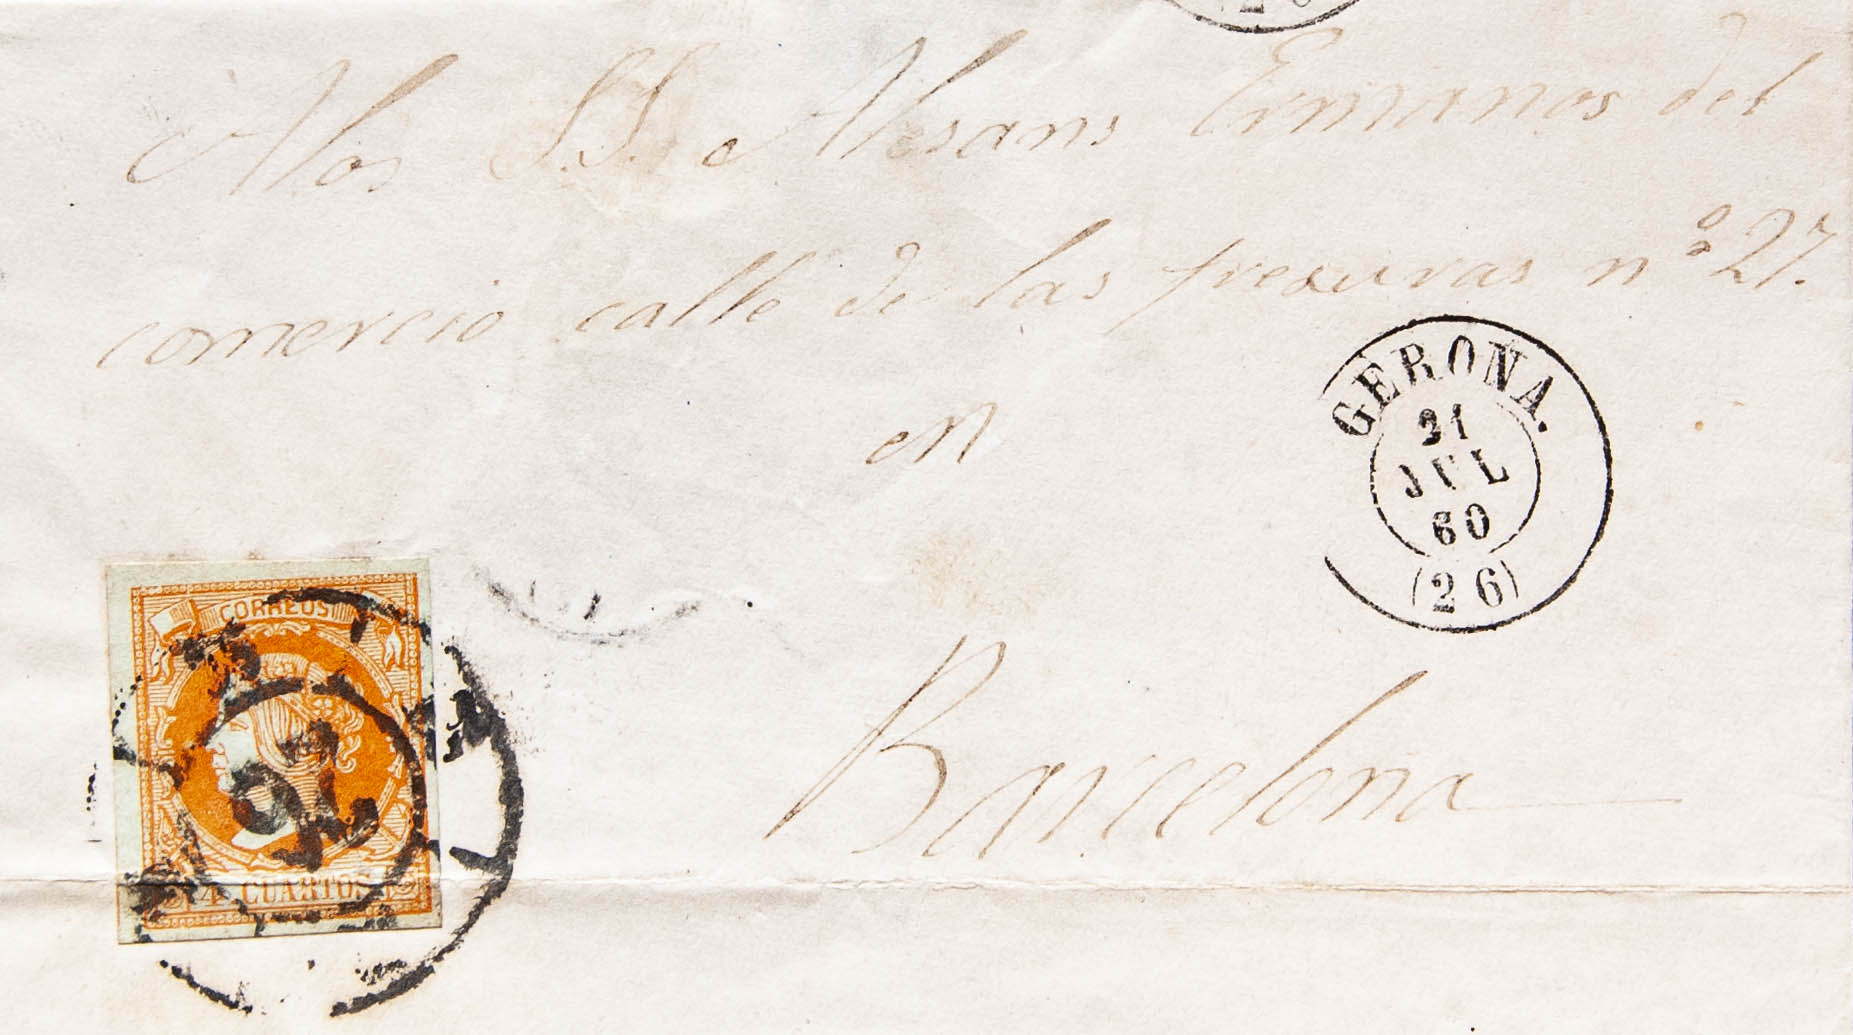 A los SS. Alesans Ermanos del
comercio calle de las frexuras nº 27.
en
Barcelona
GERONA.
21
JUL
60
(26)
CORREOS
4 CUARTOS